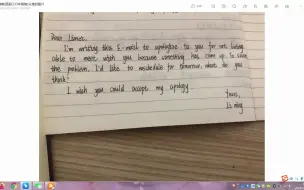 Dear Ismer.
I'm writing this E-mail to apologize to you for not being
able to meet with you because something has come up. To solve
the problem, I'd like to reschedule for tomorrow, what do you
think?
I wish you could accept my apology.
Yours,
Li ming